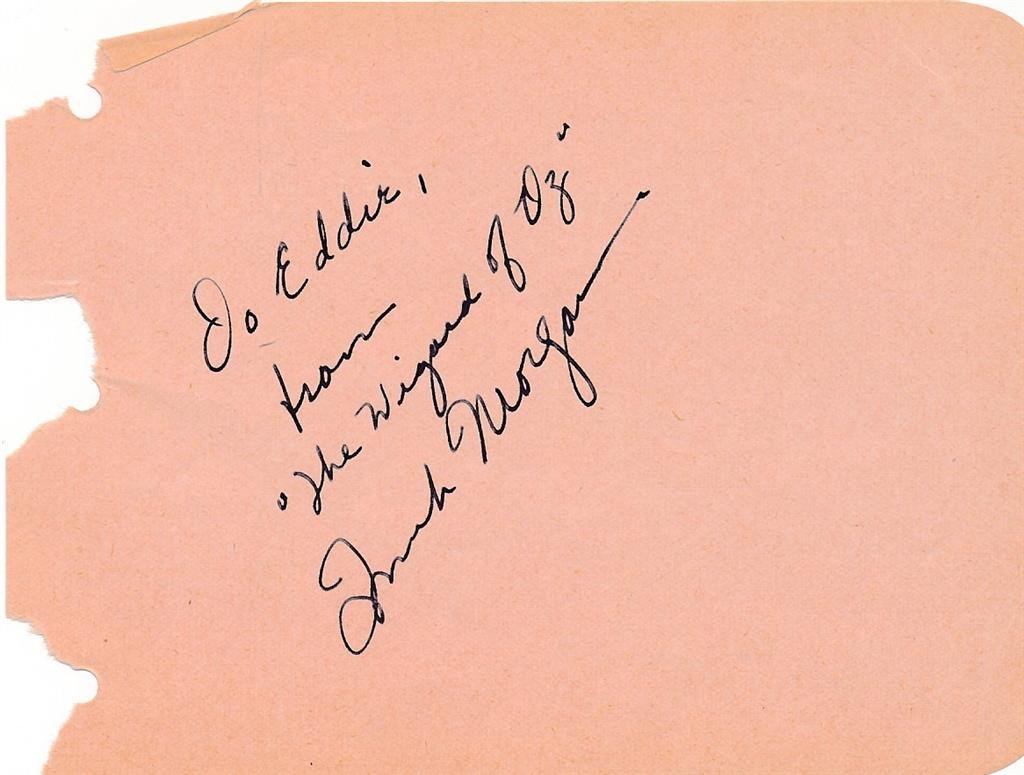 To Eddie,
from
"The Wizard of Oz"
Frank Morgan